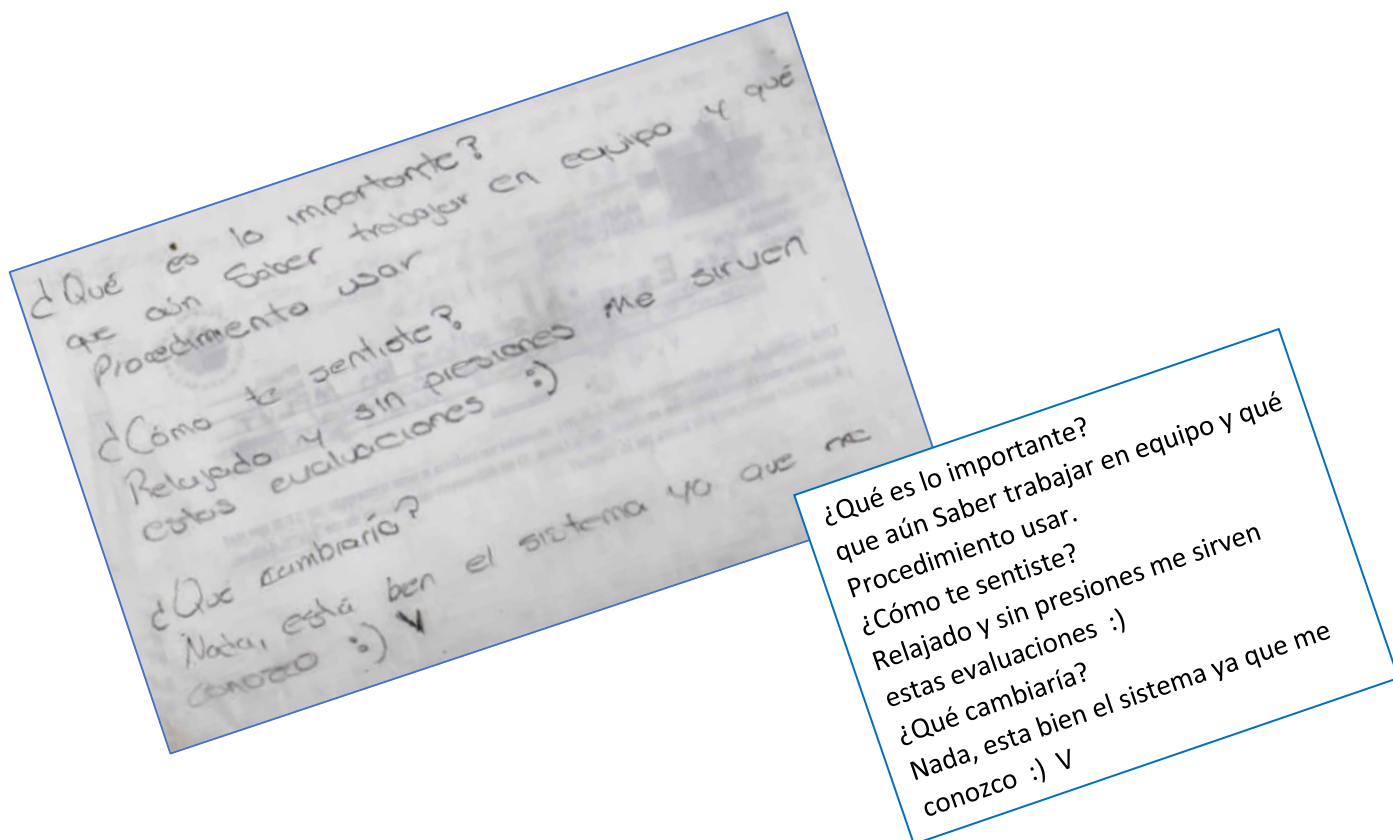 ¿Qué es lo importante?
que aún Saber trabajar en equipo y qué
Procedimento usar
¿Cómo te sentiste?
Relajado y sin presiones me sirven
estas evaluaciones :)
¿Qué cambiaría?
Nada, está ben el sistema ya que me
conozco :) V
¿Qué es lo importante?
que aún Saber trabajar en equipo y qué
Procedimiento usar.
¿Cómo te sentiste?
Relajado y sin presiones me sirven
estas evaluaciones :)
¿Qué cambiaría?
Nada, esta bien el sistema ya que me
conozco :) V